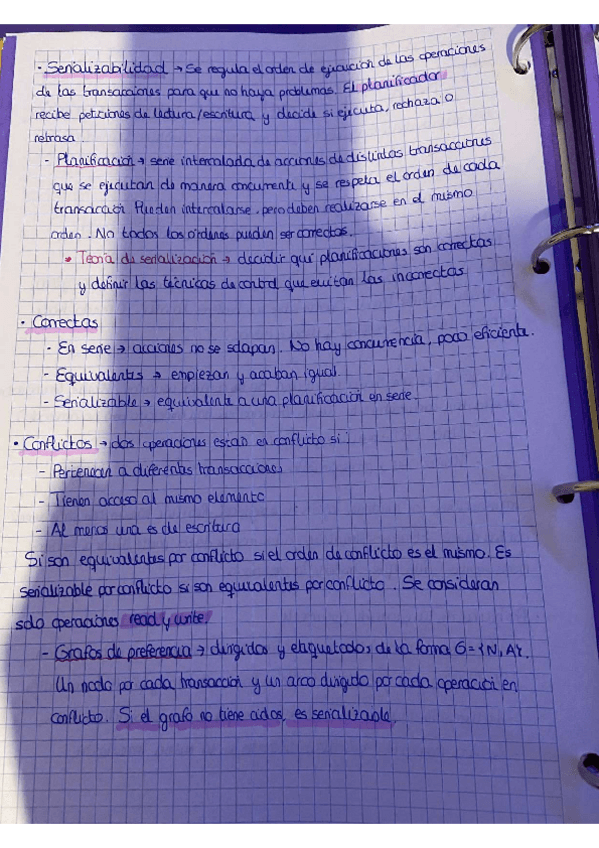 · Serializabilidad → Se regula el orden de ejecución de las operaciones
de las transacciones para que no haya problemas. El planificador
recibe peticiones de lectura/escritura y decide si ejecuta, rechaza o
retrasa
- Planificación → serie intercalada de acciones de distintas transacciones
que se ejecutan de manera concurrente y se respeta el orden de cada
transacción. Pueden intercalarse, pero deben realizarse en el mismo
orden. No todos los órdenes pueden ser correctos.
* Teoría de serialización → decidir qué planificaciones son correctas
y definir las técnicas de control que evitan las incorrectas
· Correctas
- En serie → acciones no se solapan. No hay concurrencia, poco eficiente.
- Equivalentes → empiezan y acaban igual
- Serializable → equivalente a una planificación en serie.
· Conflictos → dos operaciones están en conflicto si:
- Pertenecen a diferentes transacciones
- Tienen acceso al mismo elemento
- Al menos una es de escritura
Si son equivalentes por conflicto si el orden de conflicto es el mismo. Es
serializable por conflicto si son equivalentes por conflicto. Se consideran
solo operaciones read y write.
- Grafos de preferencia → dirigidos y etiquetados de la forma G={N,A}.
Un nodo por cada transacción y un arco dirigido por cada operación en
conflicto. Si el grafo no tiene ciclos, es serializable.